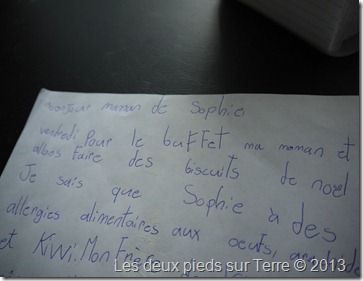 bonjour maman de Sophie,
vendredi Pour le buffet ma maman et
allons faire des biscuits de noel
Je sais que Sophie à des
allergies alimentaires aux oeufs,
et Kiwi. Mon Frère
Les deux pieds sur Terre © 2013